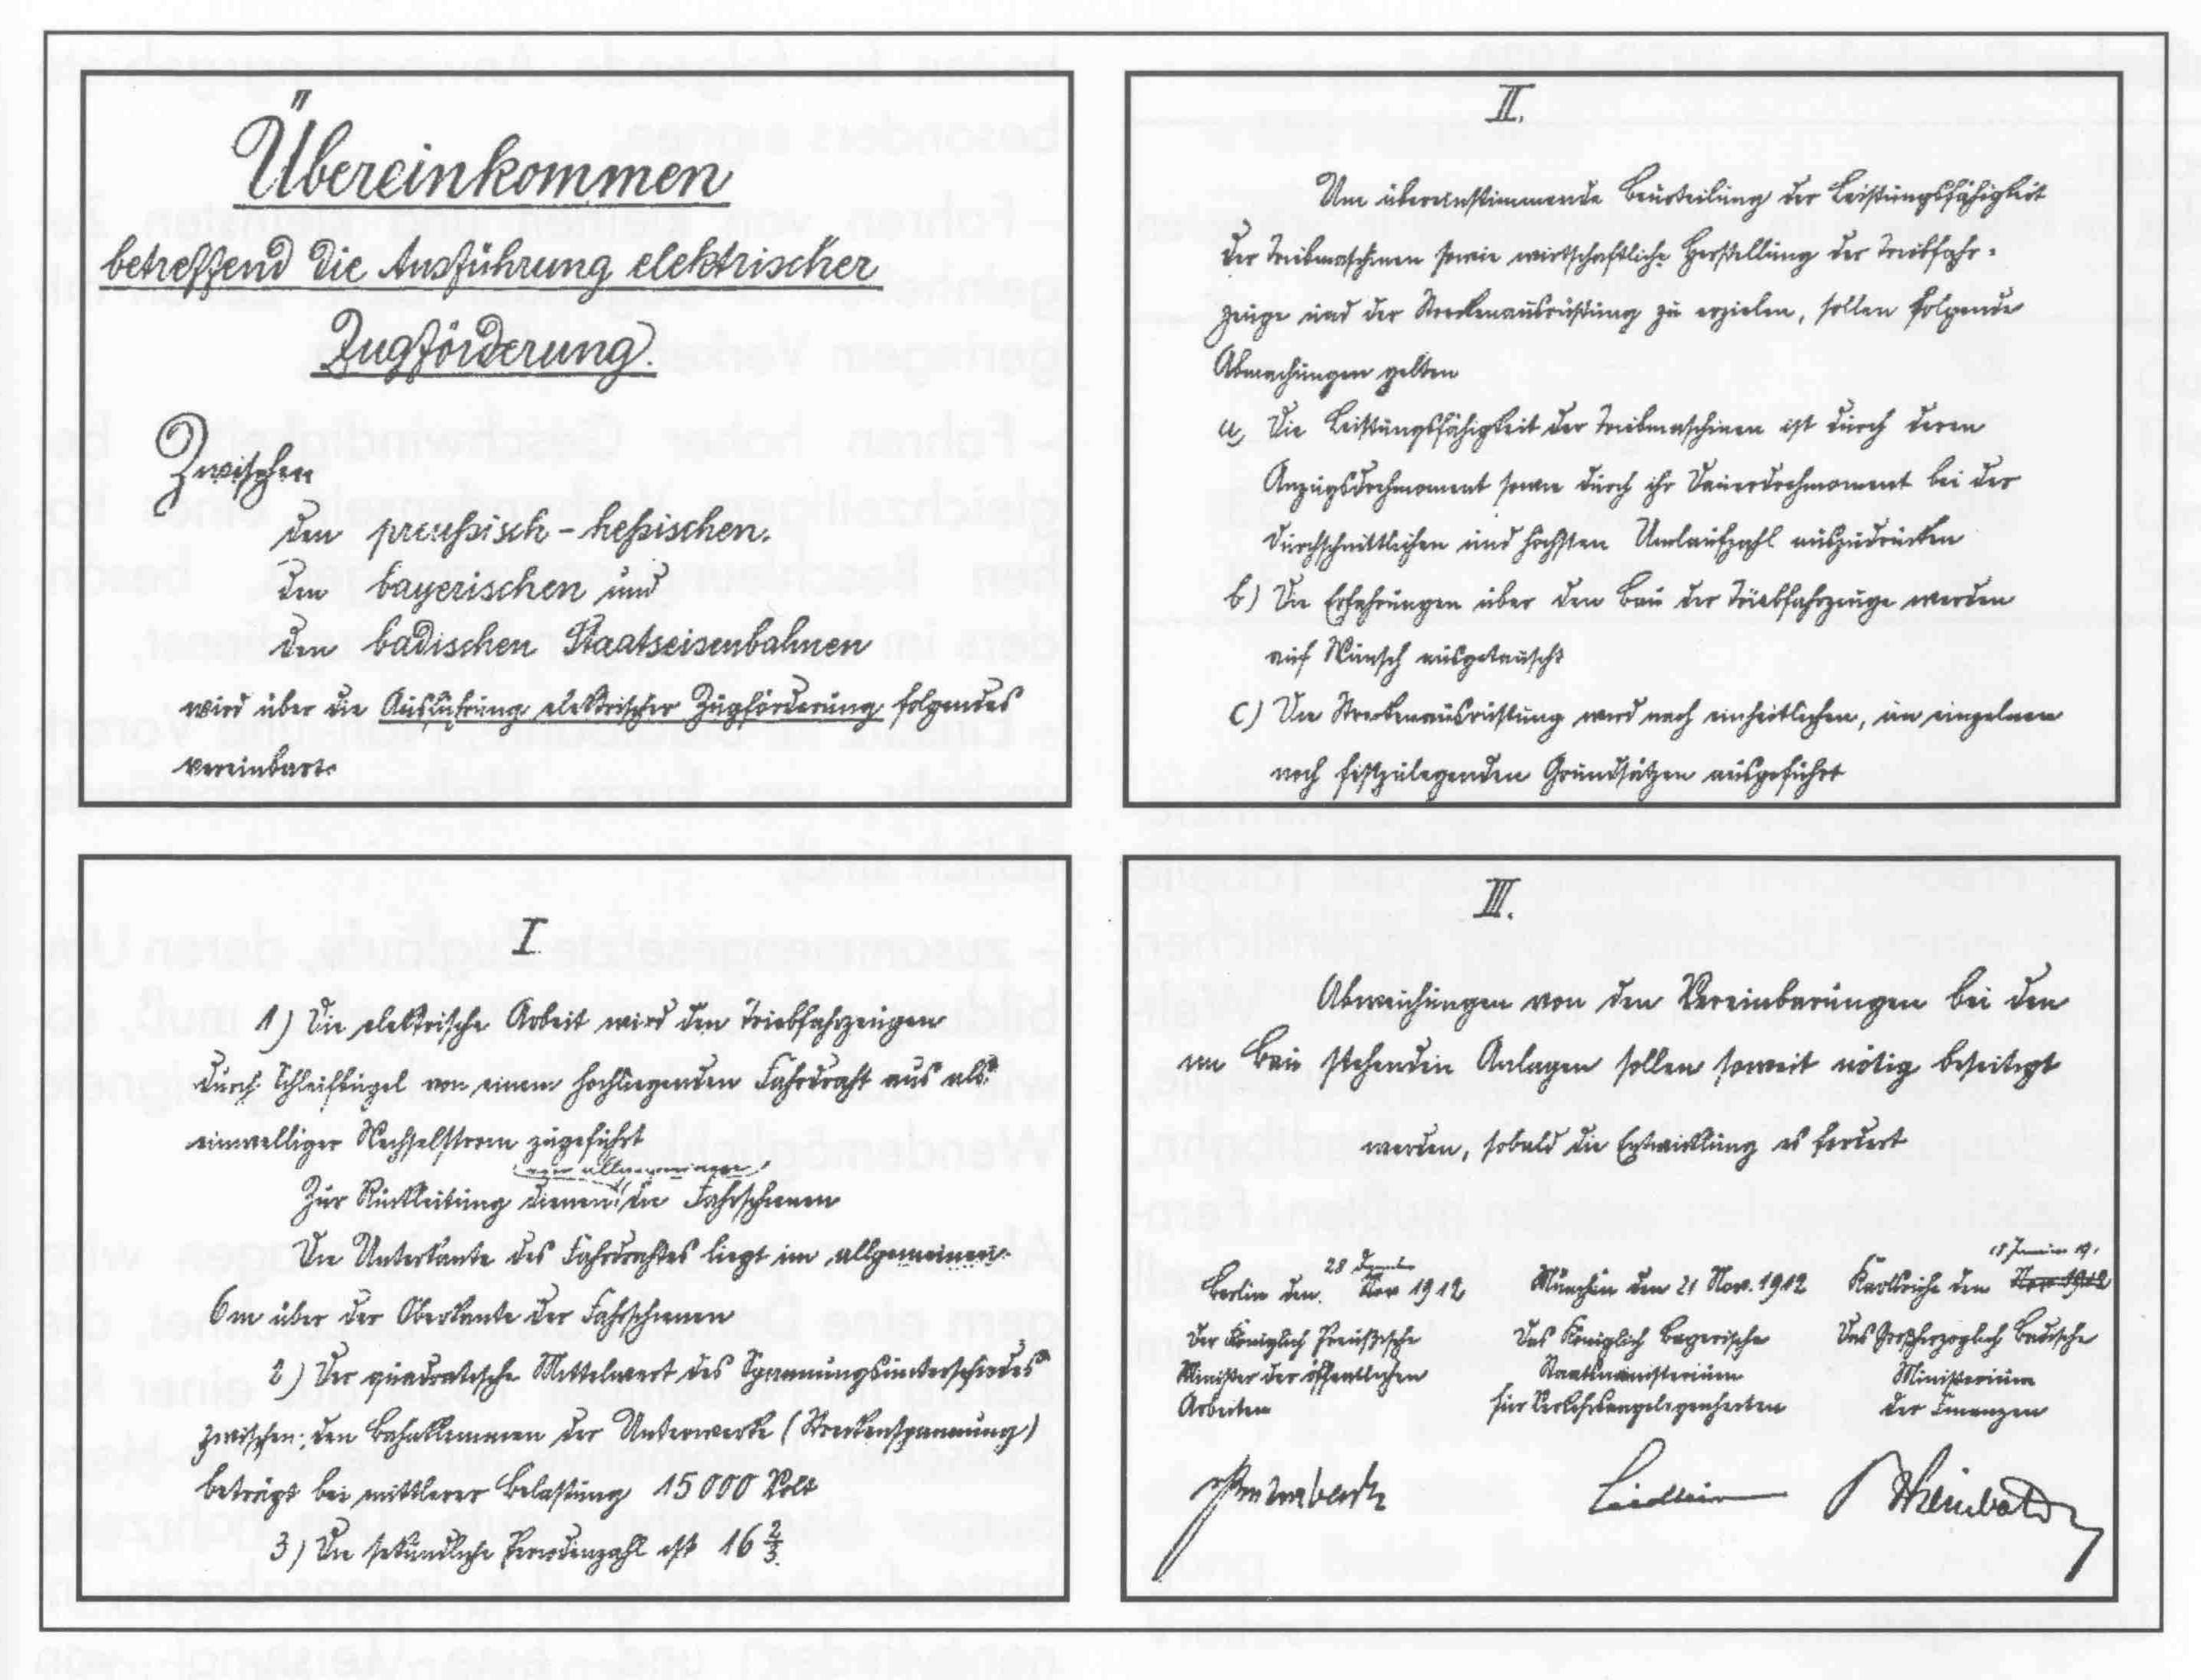 Übereinkommen
betreffend die Ausführung elektrischer
Zugförderung.
Zwischen
den preußisch-heßischen,
den bayerischen und
den badischen Staatseisenbahnen
wird über die Ausführung elektrischer Zugförderung folgendes
vereinbart:
I
1) Die elektrische Arbeit wird den Triebfahrzeugen
durch Schleifbügel von einem hochliegenden Fahrdraht aus als
einwelliger Wechselstrom zugeführt
im allgemeinen
Zur Rückleitung dienen die Fahrschienen
Die Unterkante des Fahrdrahtes liegt im allgemeinen
6 m über der Oberkante der Fahrschienen
2) Der quadratische Mittelwert des Spannungsunterschiedes
zwischen den Bahnklemmen der Unterwerke (Streckenspannung)
beträgt bei mittlerer Belastung 15000 Volt
3) Die sekundliche Periodenzahl ist 16 2/3.
II.
Um übereinstimmende Beurteilung der Leistungsfähigkeit
der Triebmaschinen sowie wirtschaftliche Herstellung der Triebfahr-
zeuge und der Streckenausrüstung zu erzielen, sollen folgende
Abmachungen gelten
a) Die Leistungsfähigkeit der Triebmaschinen ist durch deren
Anzugsdrehmoment sowie durch ihr Dauerdrehmoment bei der
durchschnittlichen und höchsten Umlaufzahl auszudrücken
b) Die Erfahrungen über den Bau der Triebfahrzeuge werden
auf Wunsch ausgetauscht
c) Die Streckenausrüstung wird nach einheitlichen, im einzelnen
noch festzulegenden Grundsätzen ausgeführt
III.
Abweichungen von den Vereinbarungen bei den
im Bau stehenden Anlagen sollen soweit nötig beseitigt
werden, sobald die Entwicklung es fordert
28 Dezember
Berlin den Nov 1912
Der Königlich Preußische
Minister der öffentlichen
Arbeiten
München den 21 Nov. 1912
Das Königlich Bayerische
Staatsministerium
für Verkehrsangelegenheiten
18 Januar 19
Karlsruhe den Nov 1912
Das Großherzoglich Badische
Ministerium
der Finanzen
Rheinboldt